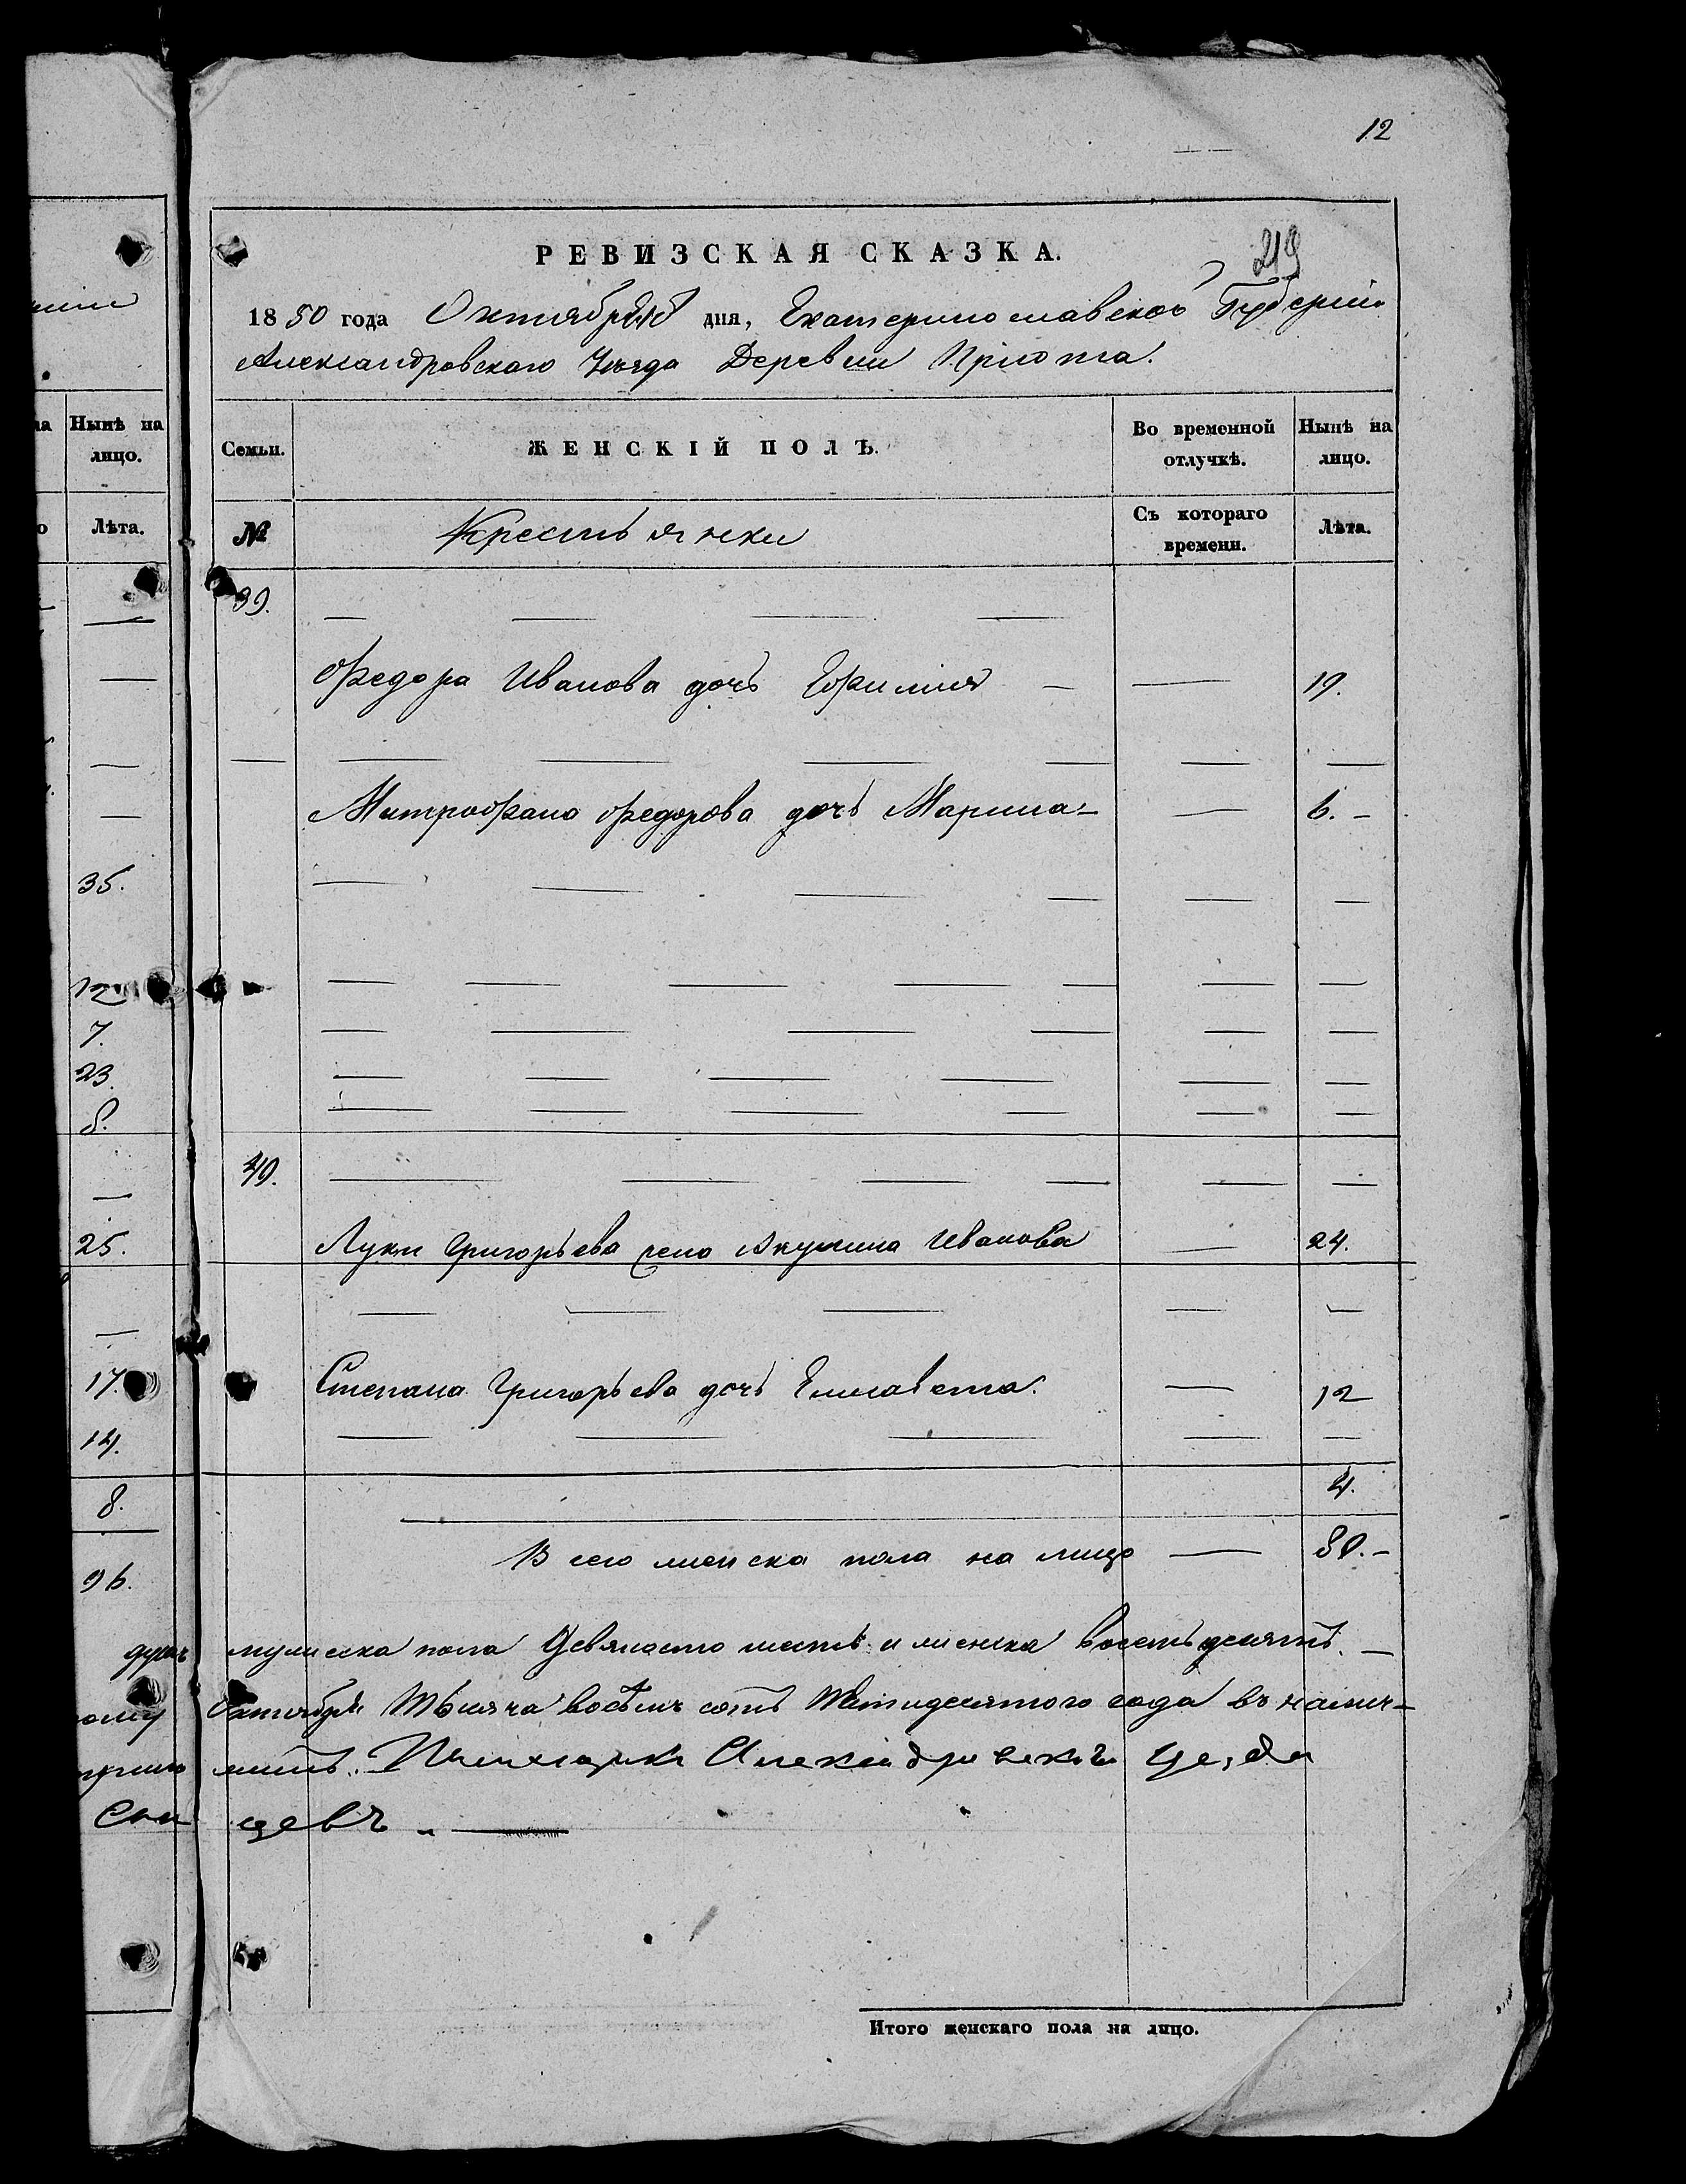 12
РЕВИЗСКАЯ СКАЗКА.
219
1850 года Октября дня, Екатеринославской Губернии
Александровского Уезда Деревни Приюта.
Нынѣ на лицо.
Лѣта.
Семьи.
ЖЕНСКІЙ ПОЛЪ.
Во временной отлучкѣ.
Нынѣ на лицо.
№
Крестьянки
Съ котораго времени.
Лѣта.
39.
Федора Иванова дочь Ефимия — — 19.
Митрофана Федорова дочь Марина — — 6. —
35.
12
7.
23.
8.
40.
25.
Луки Григорьева жена Акулина Иванова — 24.
17.
Степана Григорьева дочь Елисавета. — 12
14.
8.
4.
Всего женска пола на лицо — 80. —
96.
душъ мужеска пола девяносто шесть и женска восемьдесятъ. —
Октября Тысяча восемь сотъ пятидесятого года въ
Александровскаго уезда
цевъ
Итого женскаго пола на лицо.